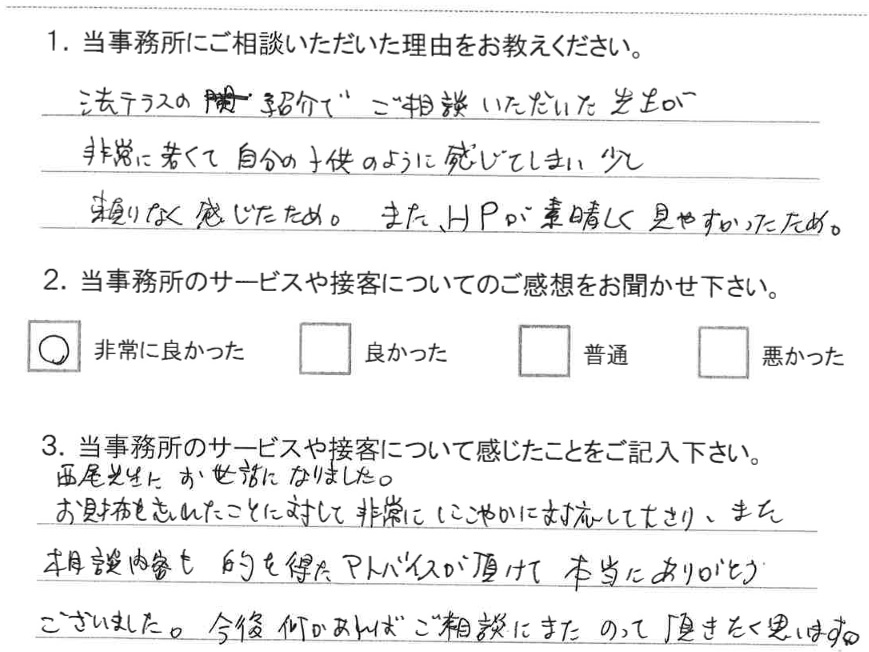 1. 当事務所にご相談いただいた理由をお教えください。
法テラスの 紹介で ご相談 いただいた 先生が
非常に若くて 自分の子供のように 感じてしまい 少し
頼りなく 感じたため。 また、HPが 素晴しく 見やすかったため。
2. 当事務所のサービスや接客についてのご感想をお聞かせ下さい。
○ 非常に良かった 良かった 普通 悪かった
3. 当事務所のサービスや接客について感じたことをご記入下さい。
西尾先生に お世話になりました。
お財布を忘れたことに対して 非常に にこやかに対応して下さり、また
相談内容も 的を得た アドバイスが頂けて 本当に ありがとう
ございました。 今後 何かあれば ご相談に また のって 頂きたく思います。